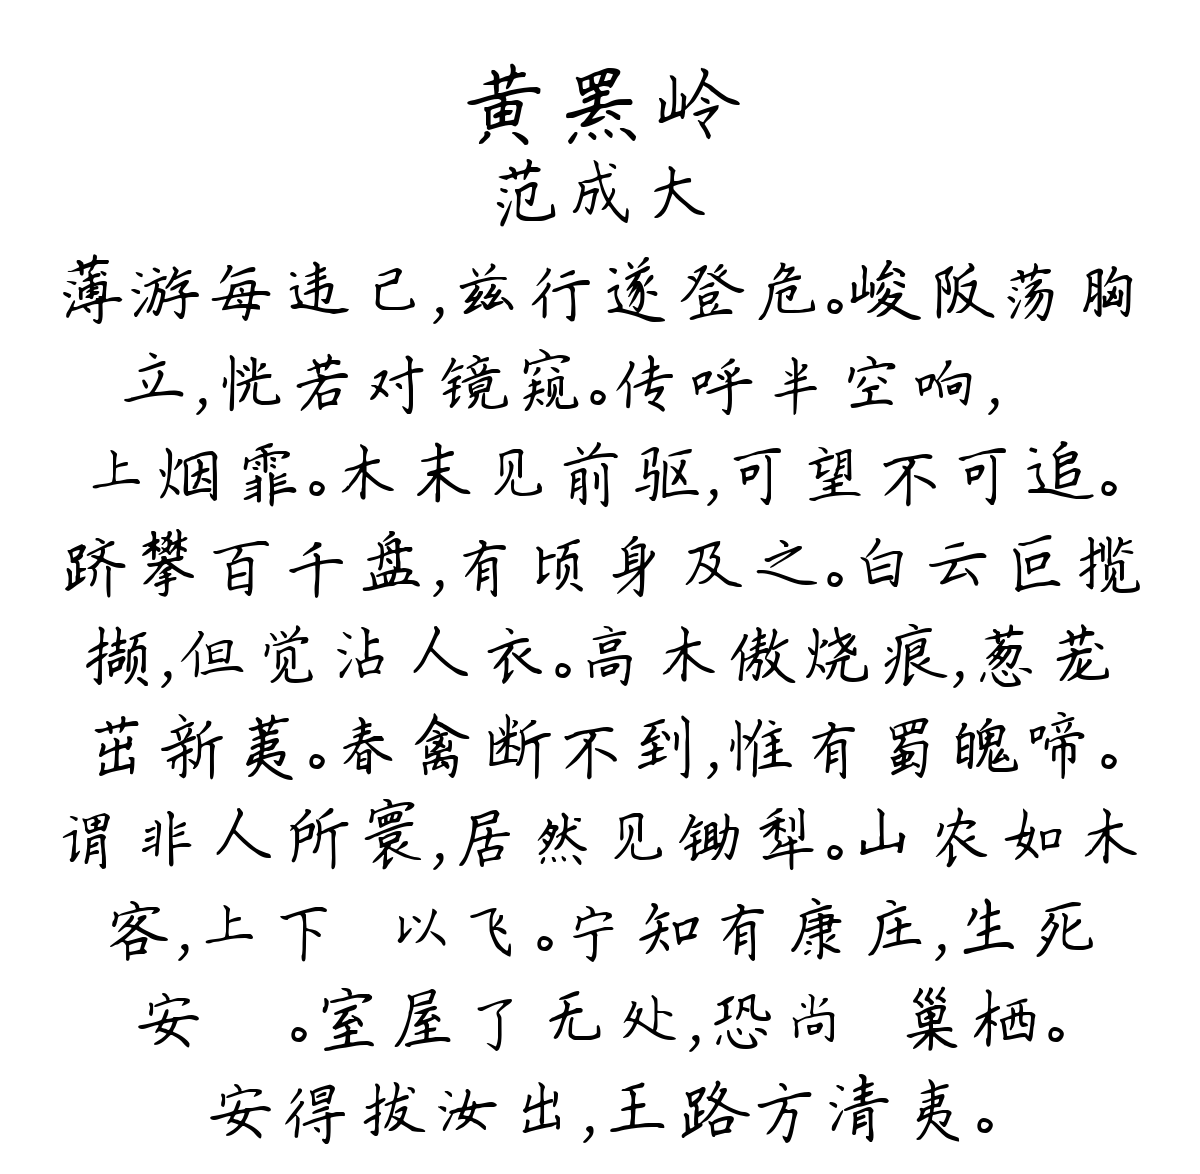 黄罴岭
范成大
薄游每违己,兹行遂登危。峻阪荡胸
立,恍若对镜窥。传呼半空响,
上烟霏。木末见前驱,可望不可追。
跻攀百千盘,有顷身及之。白云叵揽
撷,但觉沾人衣。高木傲烧痕,葱茏
茁新荑。春禽断不到,惟有蜀魄啼。
谓非人所寰,居然见锄犁。山农如木
客,上下 以飞。宁知有康庄,生死
安 。室屋了无处,恐尚 巢栖。
安得拔汝出,王路方清夷。